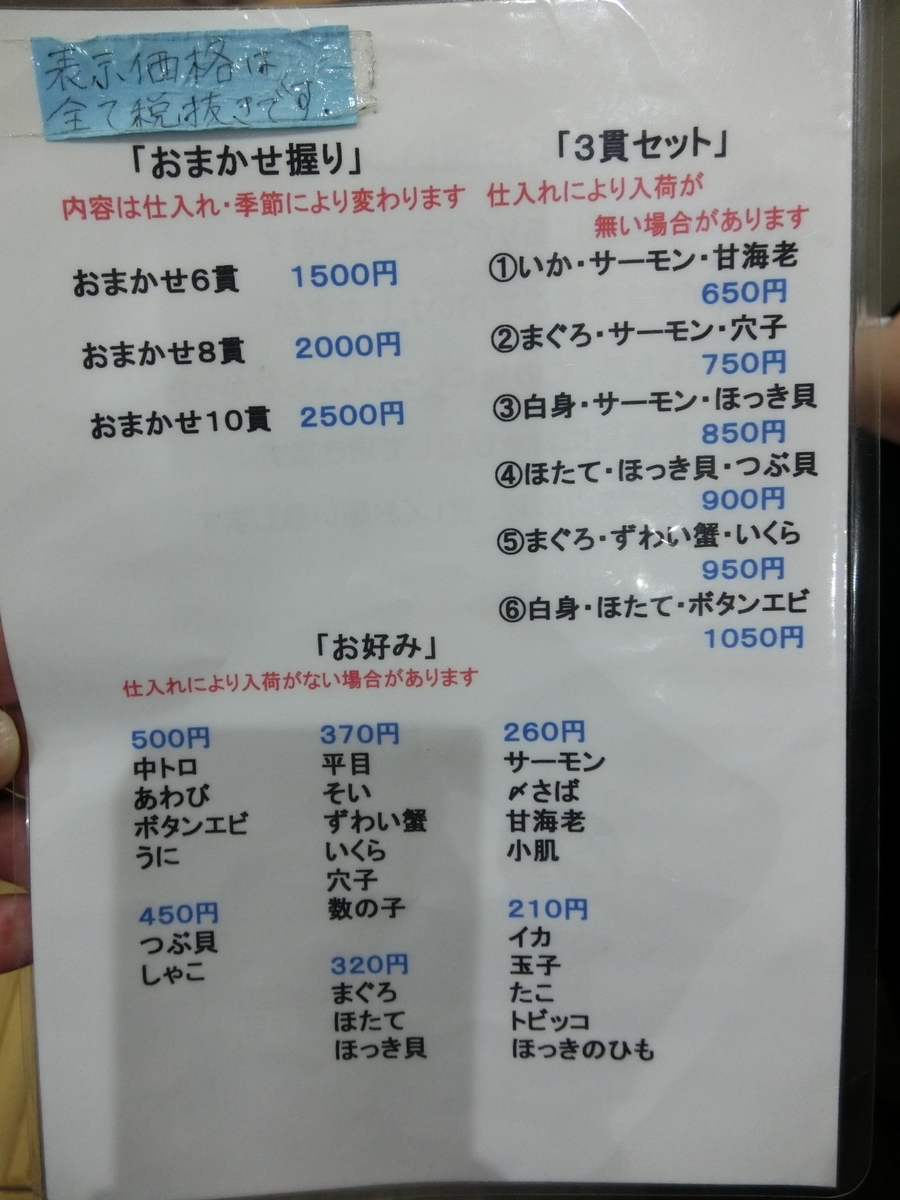 表示価格は
全て税抜きです.
「おまかせ握り」
内容は仕入れ・季節により変わります
おまかせ6貫 1500円
おまかせ8貫 2000円
おまかせ10貫 2500円
「3貫セット」
仕入れにより入荷が
無い場合があります
①いか・サーモン・甘海老
650円
②まぐろ・サーモン・穴子
750円
③白身・サーモン・ほっき貝
850円
④ほたて・ほっき貝・つぶ貝
900円
⑤まぐろ・ずわい蟹・いくら
950円
⑥白身・ほたて・ボタンエビ
1050円
「お好み」
仕入れにより入荷がない場合があります
500円
中トロ
あわび
ボタンエビ
うに
450円
つぶ貝
しゃこ
370円
平目
そい
ずわい蟹
いくら
穴子
数の子
320円
まぐろ
ほたて
ほっき貝
260円
サーモン
〆さば
甘海老
小肌
210円
イカ
玉子
たこ
トビッコ
ほっきのひも